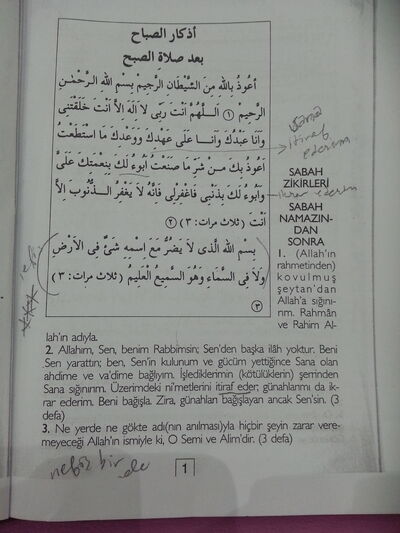 أذكار الصباح
بعد صلاة الصبح
أعوذ بالله مِنَ الشَّيْطَانِ الرَّجيمِ بِسْمِ اللهِ الرَّحْمٰنِ
الرَّحيمِ ① اَللّٰهُمَّ أَنْتَ رَبّى لاَ اِلٰهَ اِلاَّ أَنْتَ خَلَقْتَنِى
وَاَنَا عَبْدُكَ وَاَنَا عَلَى عَهْدِكَ وَوَعْدِكَ مَا اسْتَطَعْتُ
اَعُوذُ بِكَ مِنْ شَرِّ مَا صَنَعْتُ اَبُوءُ لَكَ بِنِعْمَتِكَ عَلَىَّ
وَاَبُوءُ لَكَ بِذَنْبِى فَاغْفِرْلِى فَاِنَّهُ لاَ يَغْفِرُ الذُّنُوبَ اِلاَّ
اَنْتَ (ثلاث مرات: ٣) ②
بِسْمِ اللهِ الَّذى لاَ يَضُرُّ مَعَ اسْمِهِ شَىْءٌ فِى الاَرْضِ
وَلاَ فِى السَّمَاءِ وَهُوَ السَّميعُ العَليمُ (ثلاث مرات: ٣)
③
itiraf
ederim
ikrar ederim
SABAH
ZİKİRLERİ
SABAH
NAMAZIN-
DAN
SONRA
1. (Allah'ın
rahmetinden)
kovulmuş
şeytan'dan
Allah'a sığını-
rım. Rahmân
ve Rahim Al-
lah'ın adıyla.
2. Allahım, Sen, benim Rabbimsin; Sen'den başka ilâh yoktur. Beni
Sen yarattın; ben, Sen'in kulunum ve gücüm yettiğince Sana olan
ahdime ve va'dime bağlıyım. İşlediklerimin (kötülüklerin) şerrinden
Sana sığınırım. Üzerimdeki ni'metlerini itiraf eder, günahlarımı da ik-
rar ederim. Beni bağışla. Zira, günahları bağışlayan ancak Sen'sin. (3
defa)
3. Ne yerde ne gökte adı(nın anılması)yla hiçbir şeyin zarar vere-
meyeceği Allah'ın ismiyle ki, O Semi ve Alim'dir. (3 defa)
bir
1